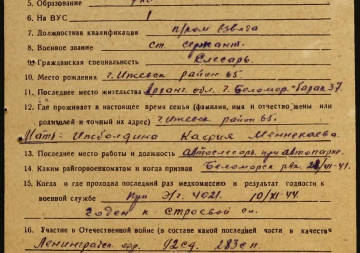 5. Образование
6. На ВУС
7. Должностная квалификация п/ком взвода
8. Военное звание ст. сержант.
9. Гражданская специальность Слесарь.
10. Место рождения г. Ижевск район 65.
11. Последнее место жительства Арханг. обл. г. Беломор. барак 37.
12. Где проживает в настоящее время семья (фамилия, имя и отчество жены или
родителей и точный их адрес) г. Ижевск район 65.
Мать:
13. Последнее место работы и должность Автослесарь при автопарке.
14. Каким райгорвоенкоматом и когда призван Беломорск рвк
15. Когда и где проходил последний раз медкомиссию и результат годности к
военной службе При Э/г 4021. 10/XI-44.
Годен к строевой сл.
16. Участие в Отечественной войне (в составе какой последней части и в качестве
Ленинград 92сд. 283сп.